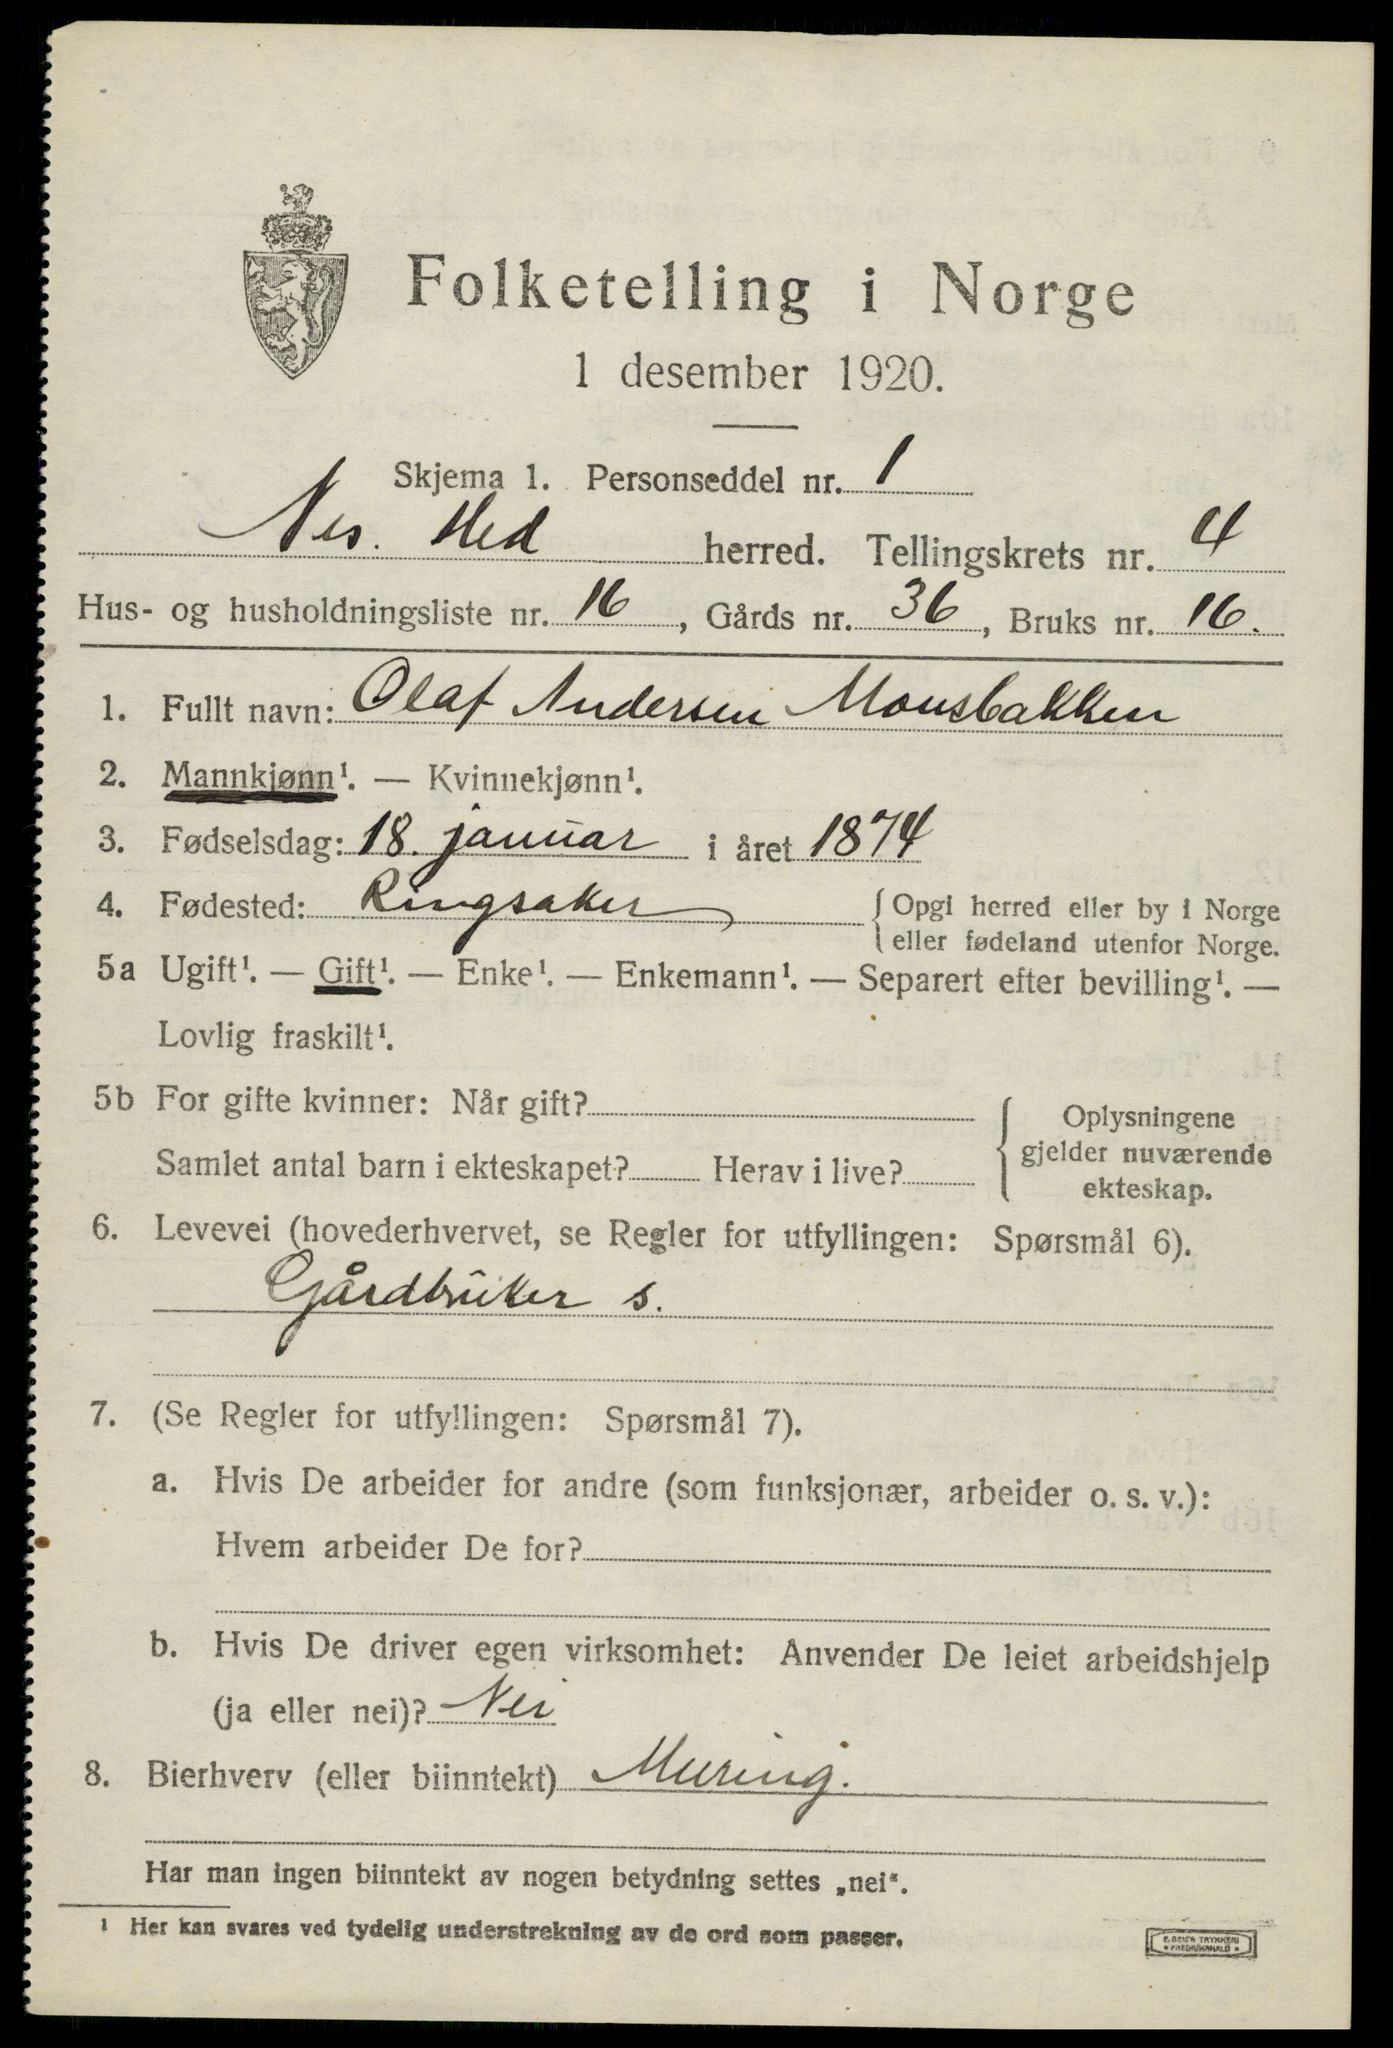 Folketelling i Norge
1 desember 1920.
Skjema 1. Personseddel nr. 1
Nes. Hed herred. Tellingskrets nr. 4
Hus- og husholdningsliste nr. 16, Gårds nr. 36, Bruks nr. 16.
1. Fullt navn: Olaf Andersen Monsbakken
2. Mannkjønn¹. — Kvinnekjønn¹.
3. Fødselsdag: 18. januar i året 1874
4. Fødested: Ringsaker { Opgi herred eller by i Norge
eller fødeland utenfor Norge.
5a Ugift¹. — Gift¹. — Enke¹. — Enkemann¹. — Separert efter bevilling¹. —
Lovlig fraskilt¹.
5b For gifte kvinner: Når gift?
Samlet antal barn i ekteskapet? Herav i live?
{ Oplysningene
gjelder nuværende
ekteskap.
6. Levevei (hovederhvervet, se Regler for utfyllingen: Spørsmål 6).
Gårdbruker s.
7. (Se Regler for utfyllingen: Spørsmål 7).
a. Hvis De arbeider for andre (som funksjonær, arbeider o. s. v.):
Hvem arbeider De for?
b. Hvis De driver egen virksomhet: Anvender De leiet arbeidshjelp
(ja eller nei)? Nei
8. Bierhverv (eller biinntekt) Muring.
Har man ingen biinntekt av nogen betydning settes „nei“.
¹ Her kan svares ved tydelig understrekning av de ord som passer.
E. SEM'S TRYKKERI
FREDRIKSHALD